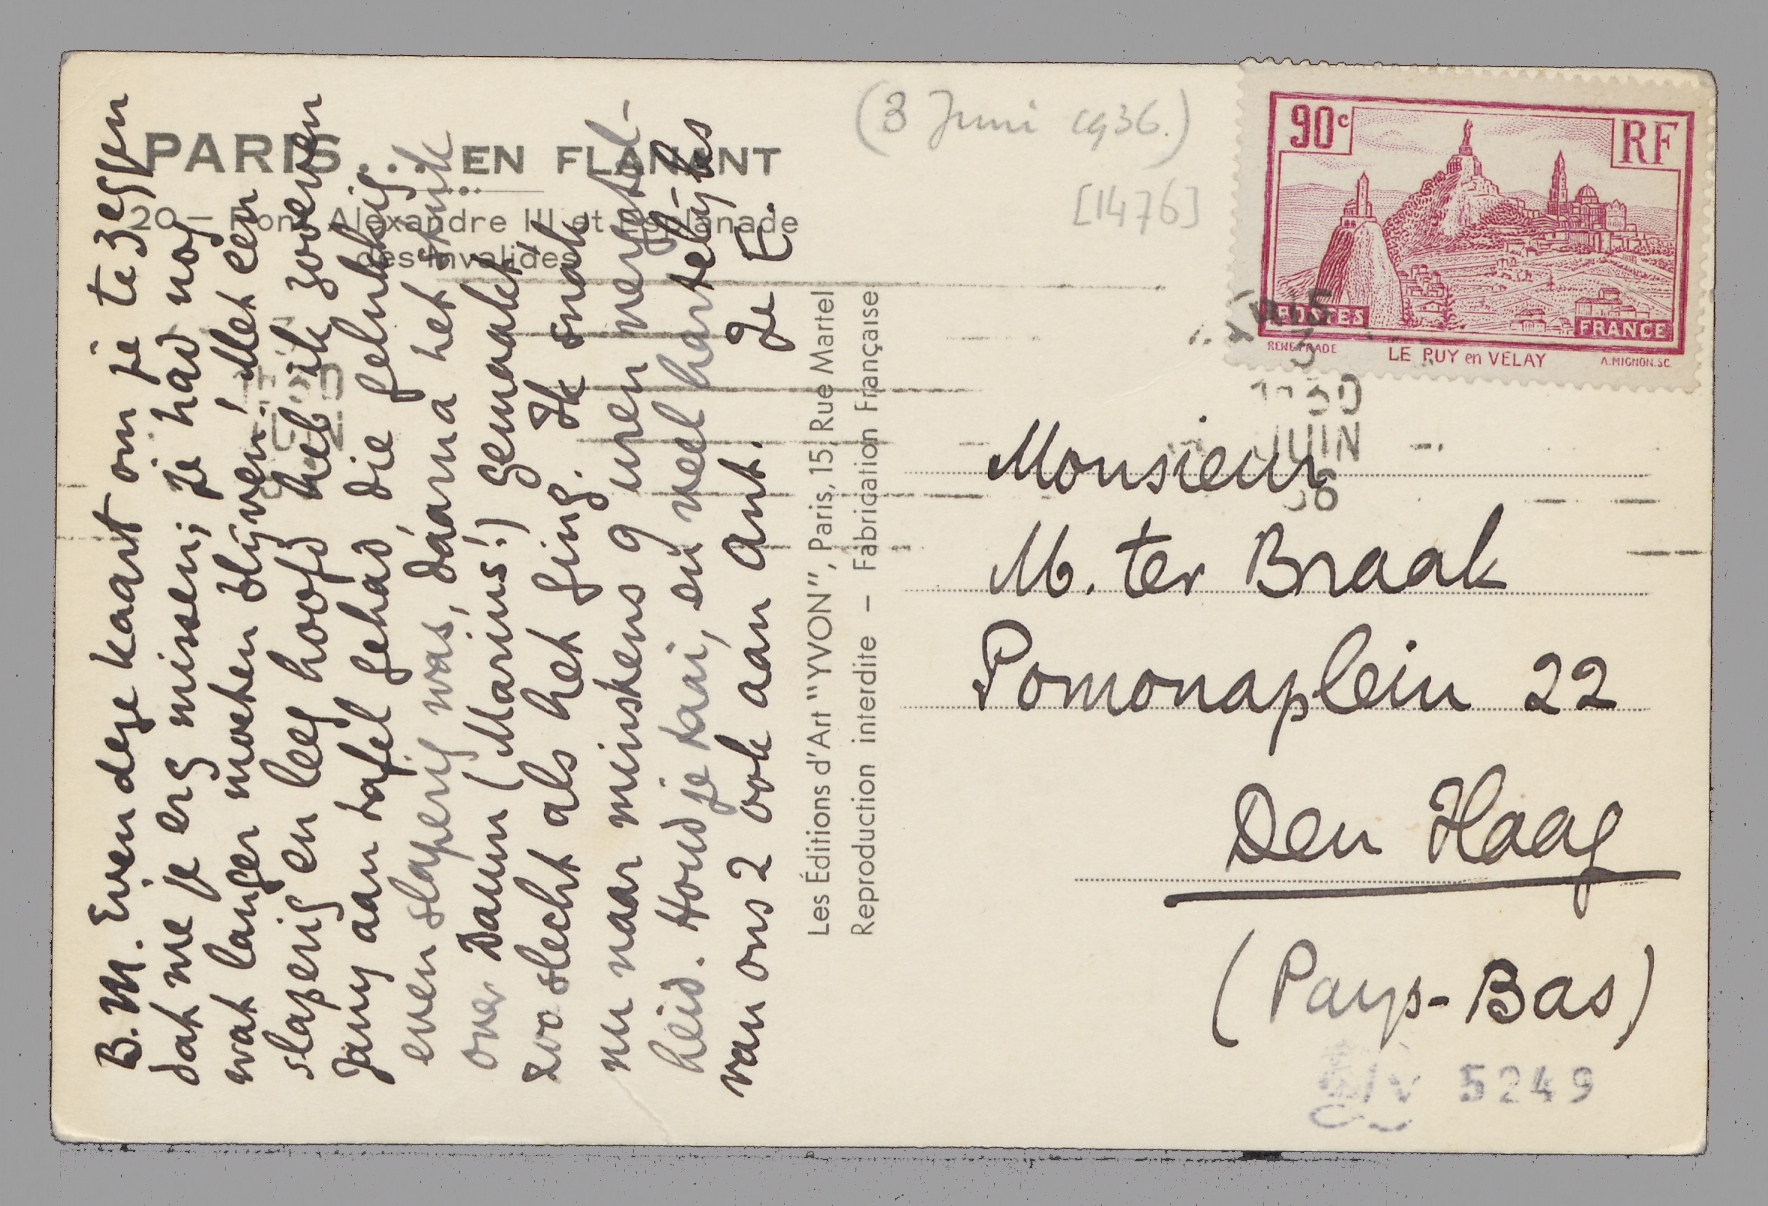 PARIS... EN FLANANT
20 — Pont Alexandre III et Esplanade
des Invalides
B. M. Even deze kaart om je te zeggen
dat we je erg missen; je had nog
wat langer moeten blijven! Met een
slaperig en leeg hoofd heb ik zooeven
Jany aan tafel gehad die gelukkig
even slaperig was, daarna het stuk
over Daum (Marius!) gemaakt,
zoo slecht als het ging. Ik snak
nu naar minstens 9 uren vergetel-
heid. Houd je taai, en veel hartelijks
van ons 2 ook aan Ant. Je E.
Les Éditions d'Art "YVON", Paris, 15, Rue Martel
Reproduction interdite — Fabrication Française
(3 Juni 1936.)
[1476]
90c
RF
POSTES
FRANCE
RENE PRADE
LE PUY en VELAY
A.MIGNON.SC.
PARIS
JUIN
36
Monsieur
M. ter Braak
Pomonaplein 22
Den Haag
(Pays-Bas)
5249